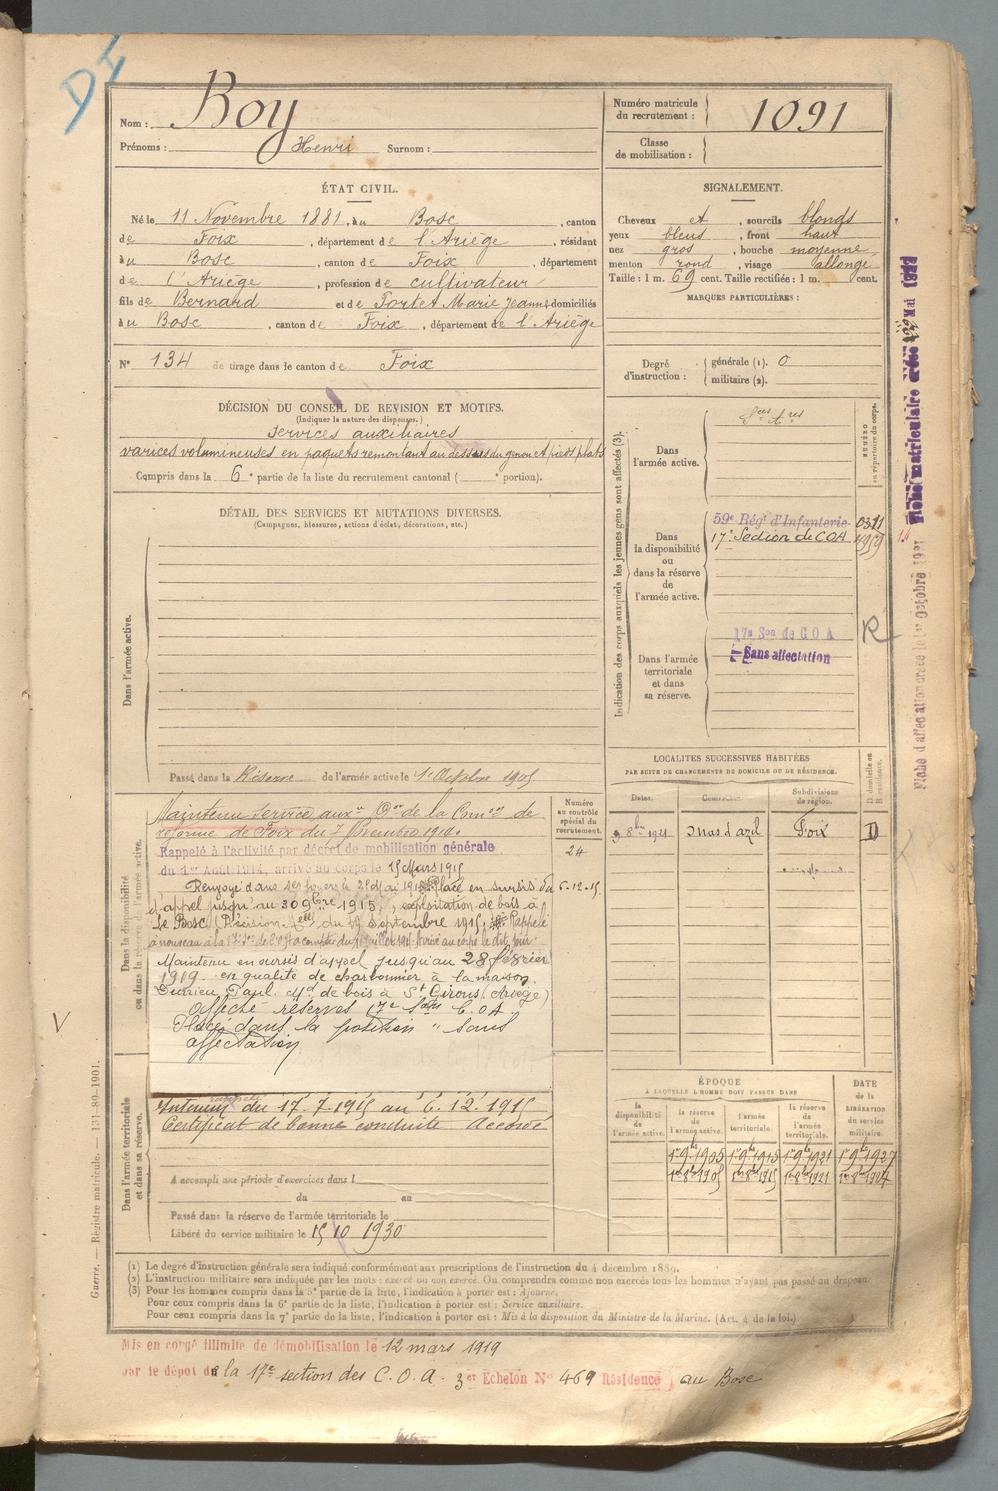 DI
Nom : Boy
Prénoms : Henri Surnom :
Numéro matricule du recrutement : 1091
Classe de mobilisation :
ÉTAT CIVIL.
Né le 11 Novembre 1881, au Bosc, canton
de Foix, département de l'Ariège, résidant
à u Bosc, canton de Foix, département
de l'Ariège, profession de cultivateur
fils de Bernard et de Fortet Marie Jeanne domiciliés
à u Bosc, canton de Foix, département de l'Ariège
N° 134 de tirage dans le canton de Foix
SIGNALEMENT.
Cheveux et, sourcils blonds
yeux bleus, front haut
nez gros, bouche moyenne
menton rond, visage allongé
Taille : 1 m. 69 cent. Taille rectifiée : 1 m. cent.
MARQUES PARTICULIÈRES :
Degré d'instruction : générale (1). 0
militaire (2).
DÉCISION DU CONSEIL DE REVISION ET MOTIFS.
(Indiquer la nature des dispenses.)
Services auxiliaires
varices volumineuses en paquets remontant au dessus du genou et pieds plats
Compris dans la 6e partie de la liste du recrutement cantonal ( e portion).
DÉTAIL DES SERVICES ET MUTATIONS DIVERSES.
(Campagnes, blessures, actions d'éclat, décorations, etc.)
Dans l'armée active.
Passé dans la Réserve de l'armée active le 1er Octobre 1905
Indication des corps auxquels les jeunes gens sont affectés (3).
NUMÉRO au répertoire du corps.
Dans l'armée active.
Dans la disponibilité ou dans la réserve de l'armée active.
59e Régt d'Infanterie 0311
17e Section de COA
Dans l'armée territoriale et dans sa réserve.
17e Son de COA
Sans affectation
R
Fiche matriculaire créée Mai
Fiche d'affectation créée le 1er Octobre 1921
LOCALITÉS SUCCESSIVES HABITÉES
PAR SUITE DE CHANGEMENTS DE DOMICILE OU DE RÉSIDENCE.
Dates. Communes. Subdivisions de région. D domicile ou R résidence.
9 8bre 1921 Mas d'azil Foix D
Dans la disponibilité ou dans la réserve de l'armée active.
Numéro au contrôle spécial du recrutement.
24
Maintenu service auxre Don de la Comon de
réforme de Foix du 7 Novembre 1914.
Rappelé à l'activité par décret de mobilisation générale
du 1er Août 1914, arrivé au corps le 15 Mars 1915
Renvoyé dans ses foyers le 2 Mai 1915 Placé en sursis du 6.12.15
d'appel jusqu'au 30 9bre 1915, exploitation de bois à
Le Bosc (Décision du 29 Septembre 1915. Rappelé
Maintenu en sursis d'appel jusqu'au 28 février
1919 en qualité de charbonnier à la maison
Paul Md de bois à St Girons (Ariège)
affecté réserves 17e Son C.O.A.
Placé dans la position "Sans
affectation
V
Dans l'armée territoriale et dans sa réserve.
Intérieur du 17.7.1915 au 6.12.1915
Certificat de bonne conduite Accordé
A accompli une période d'exercices dans l
du au
Passé dans la réserve de l'armée territoriale le
Libéré du service militaire le 15 10 1930
ÉPOQUE
À LAQUELLE L'HOMME DOIT PASSER DANS
la disponibilité de l'armée active. la réserve de l'armée active. l'armée territoriale. la réserve de l'armée territoriale.
DATE de la LIBÉRATION du service militaire.
1er 9bre 1905 1er 9bre 1915 1er 9bre 1921 1er 9bre 1927
1er 8bre 1905 1er 8bre 1915 1er 8bre 1921
Guerre. — Registre matricule. — 131-89-1901.
(1) Le degré d'instruction générale sera indiqué conformément aux prescriptions de l'instruction du 4 décembre 1889.
(2) L'instruction militaire sera indiquée par les mots : exercé ou non exercé. On comprendra comme non exercés tous les hommes n'ayant pas passé au drapeau.
(3) Pour les hommes compris dans la 5e partie de la liste, l'indication à porter est : Ajourné.
Pour ceux compris dans la 6e partie de la liste, l'indication à porter est : Service auxiliaire.
Pour ceux compris dans la 7e partie de la liste, l'indication à porter est : Mis à la disposition du Ministre de la Marine. (Art. 4 de la loi.)
Mis en congé illimité de démobilisation le 12 mars 1919
par le dépôt de la 17e section des C.O.A. 3er Echelon No 469 Résidence au Bosc